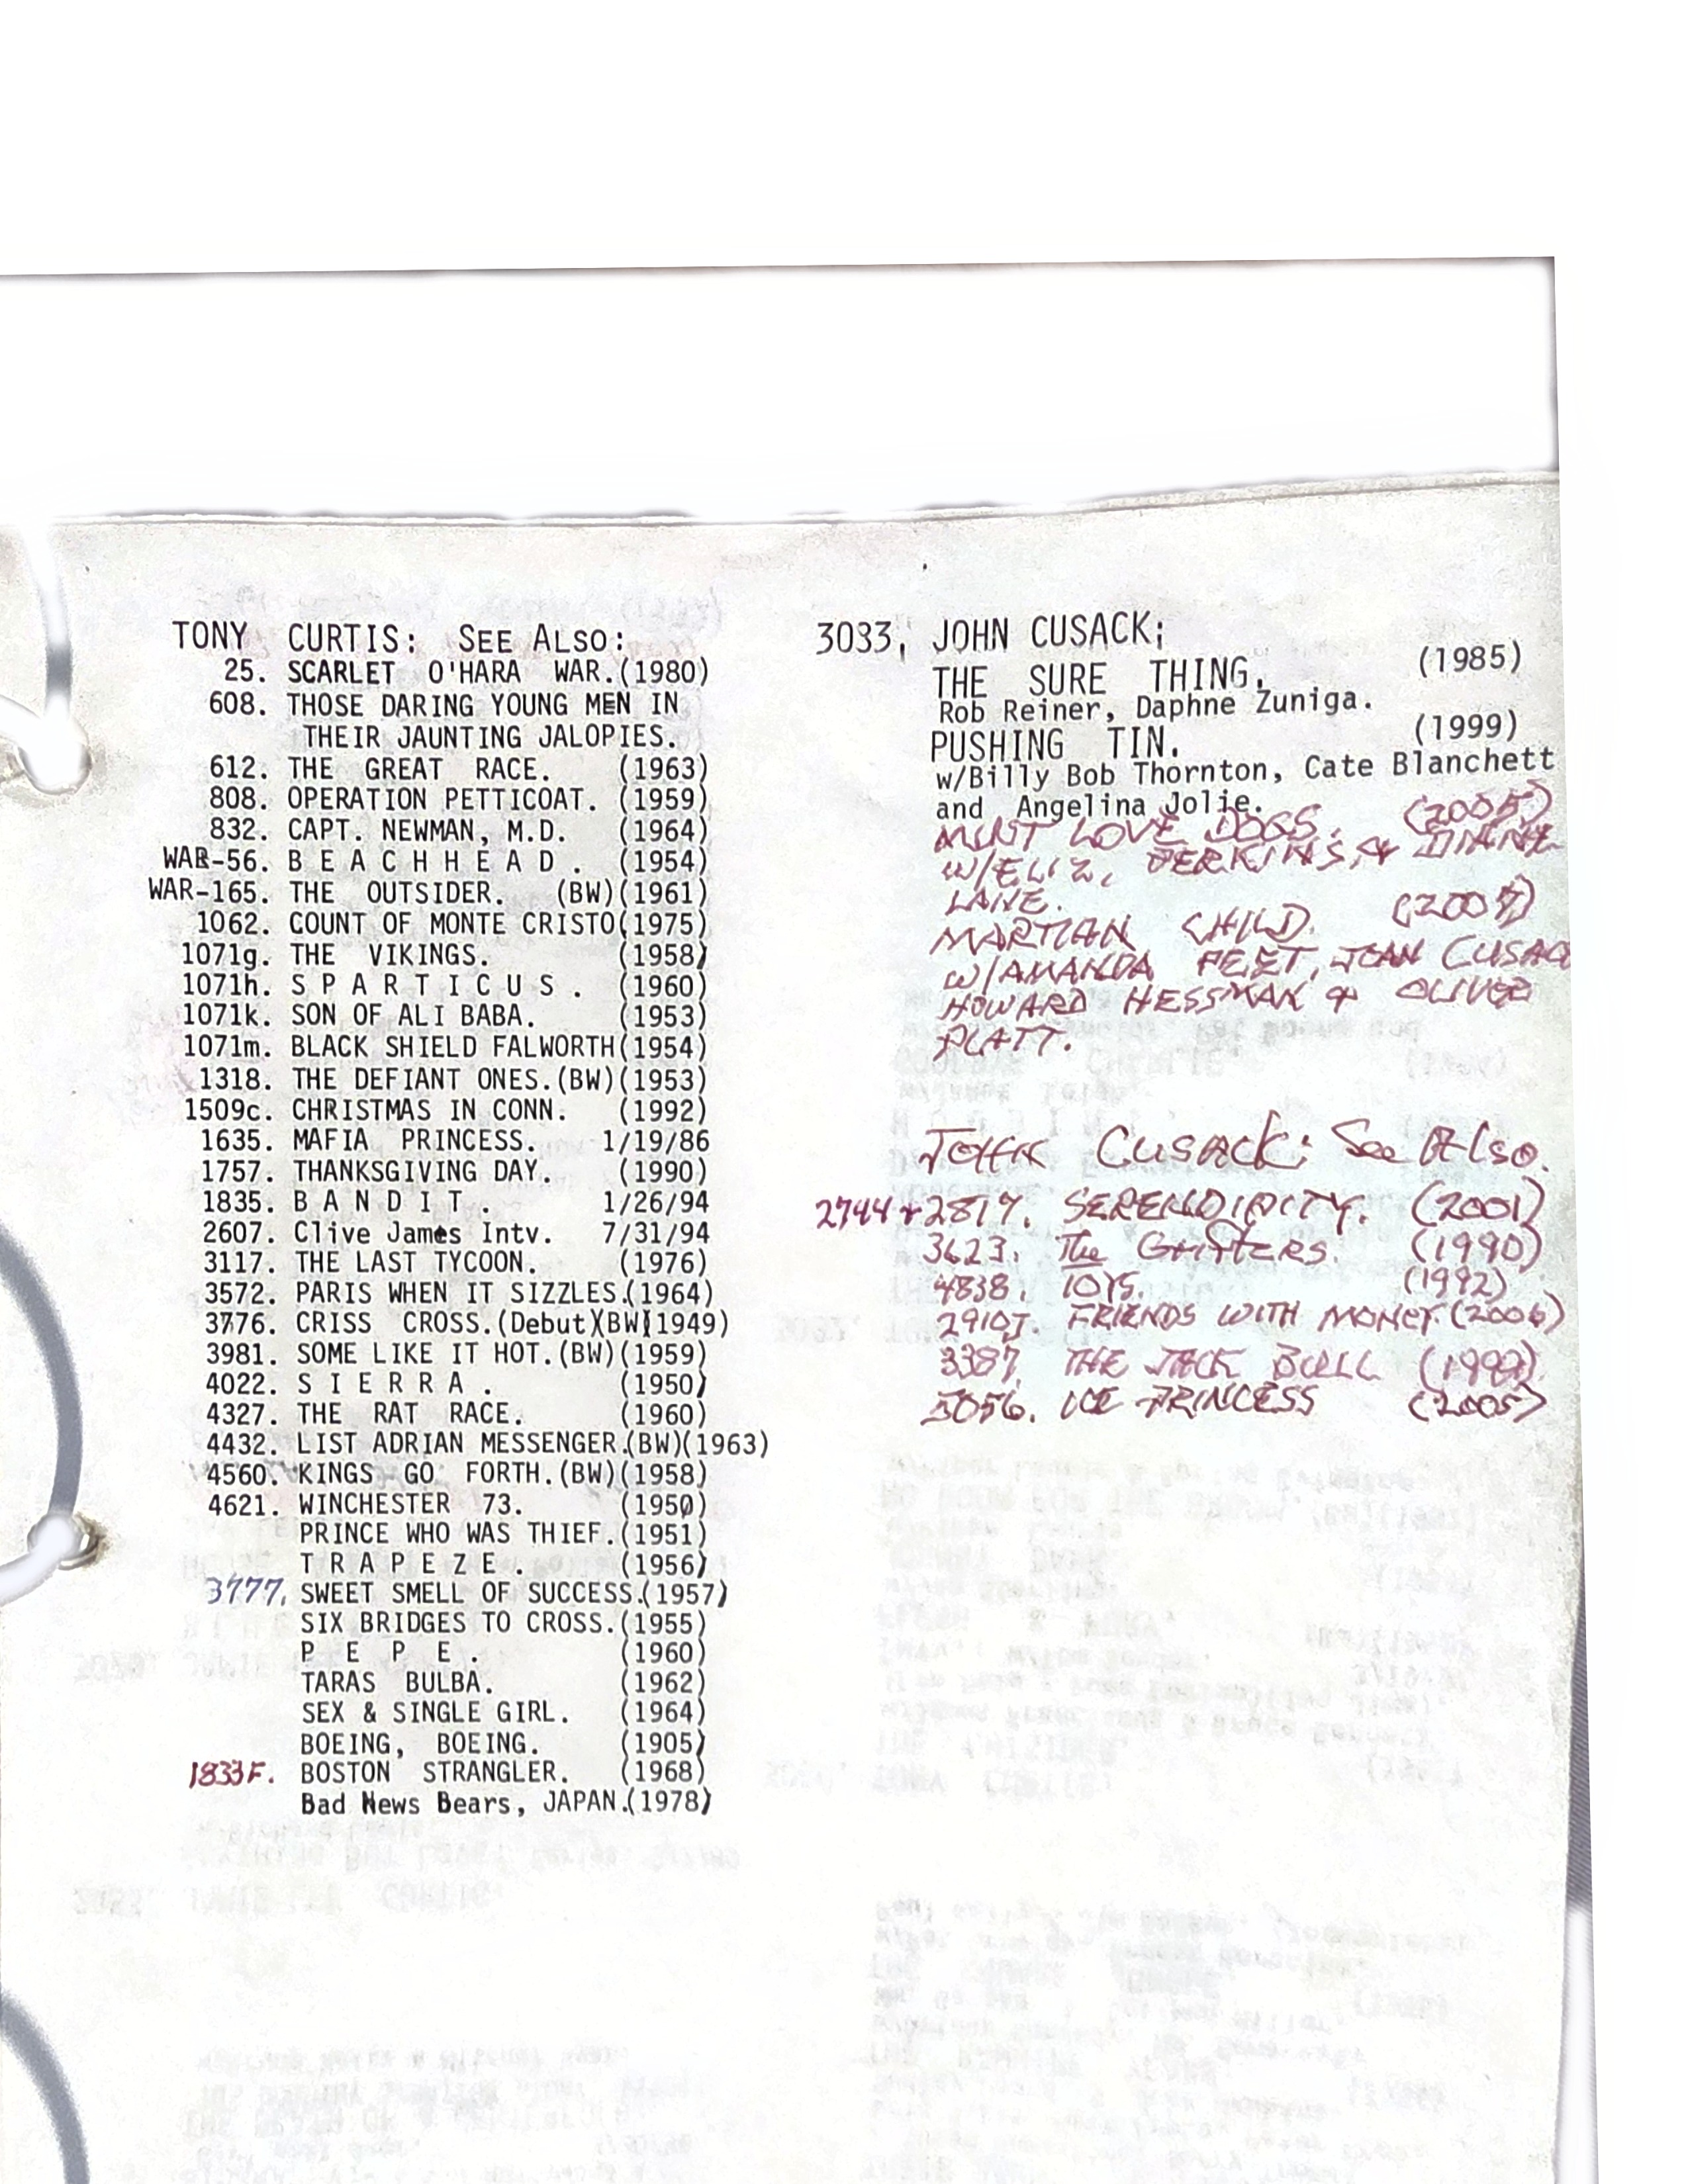 TONY CURTIS: SEE ALSO:
25. SCARLET O'HARA WAR.(1980)
608. THOSE DARING YOUNG MEN IN
THEIR JAUNTING JALOPIES.
612. THE GREAT RACE. (1963)
808. OPERATION PETTICOAT. (1959)
832. CAPT. NEWMAN, M.D. (1964)
WAR-56. B E A C H H E A D . (1954)
WAR-165. THE OUTSIDER. (BW)(1961)
1062. COUNT OF MONTE CRISTO(1975)
1071g. THE VIKINGS. (1958)
1071h. S P A R T I C U S . (1960)
1071k. SON OF ALI BABA. (1953)
1071m. BLACK SHIELD FALWORTH(1954)
1318. THE DEFIANT ONES.(BW)(1953)
1509c. CHRISTMAS IN CONN. (1992)
1635. MAFIA PRINCESS. 1/19/86
1757. THANKSGIVING DAY. (1990)
1835. B A N D I T . 1/26/94
2607. Clive James Intv. 7/31/94
3117. THE LAST TYCOON. (1976)
3572. PARIS WHEN IT SIZZLES.(1964)
3776. CRISS CROSS.(Debut)(BW)(1949)
3981. SOME LIKE IT HOT.(BW)(1959)
4022. S I E R R A . (1950)
4327. THE RAT RACE. (1960)
4432. LIST ADRIAN MESSENGER.(BW)(1963)
4560. KINGS GO FORTH.(BW)(1958)
4621. WINCHESTER 73. (1950)
PRINCE WHO WAS THIEF.(1951)
T R A P E Z E . (1956)
3777. SWEET SMELL OF SUCCESS.(1957)
SIX BRIDGES TO CROSS.(1955)
P E P E . (1960)
TARAS BULBA. (1962)
SEX & SINGLE GIRL. (1964)
BOEING, BOEING. (1905)
1833F. BOSTON STRANGLER. (1968)
Bad News Bears, JAPAN.(1978)
3033, JOHN CUSACK;
THE SURE THING. (1985)
Rob Reiner, Daphne Zuniga.
PUSHING TIN. (1999)
w/Billy Bob Thornton, Cate Blanchett
and Angelina Jolie.
MUST LOVE DOGS. (2005)
W/ELIZ. PERKINS, & DIANE
LANE.
MARTIAN CHILD. (2007)
W/AMANDA PEET, JOAN CUSACK
HOWARD HESSMAN & OLIVER
PLATT.
JOHN CUSACK: See Also.
2744 + 2817. SERENDIPITY. (2001)
3623. The GRIFTERS. (1990)
4838. TOYS. (1992)
2910J. FRIENDS WITH MONEY. (2006)
3387. THE JACK BULL (1999).
5056. ICE PRINCESS (2005)